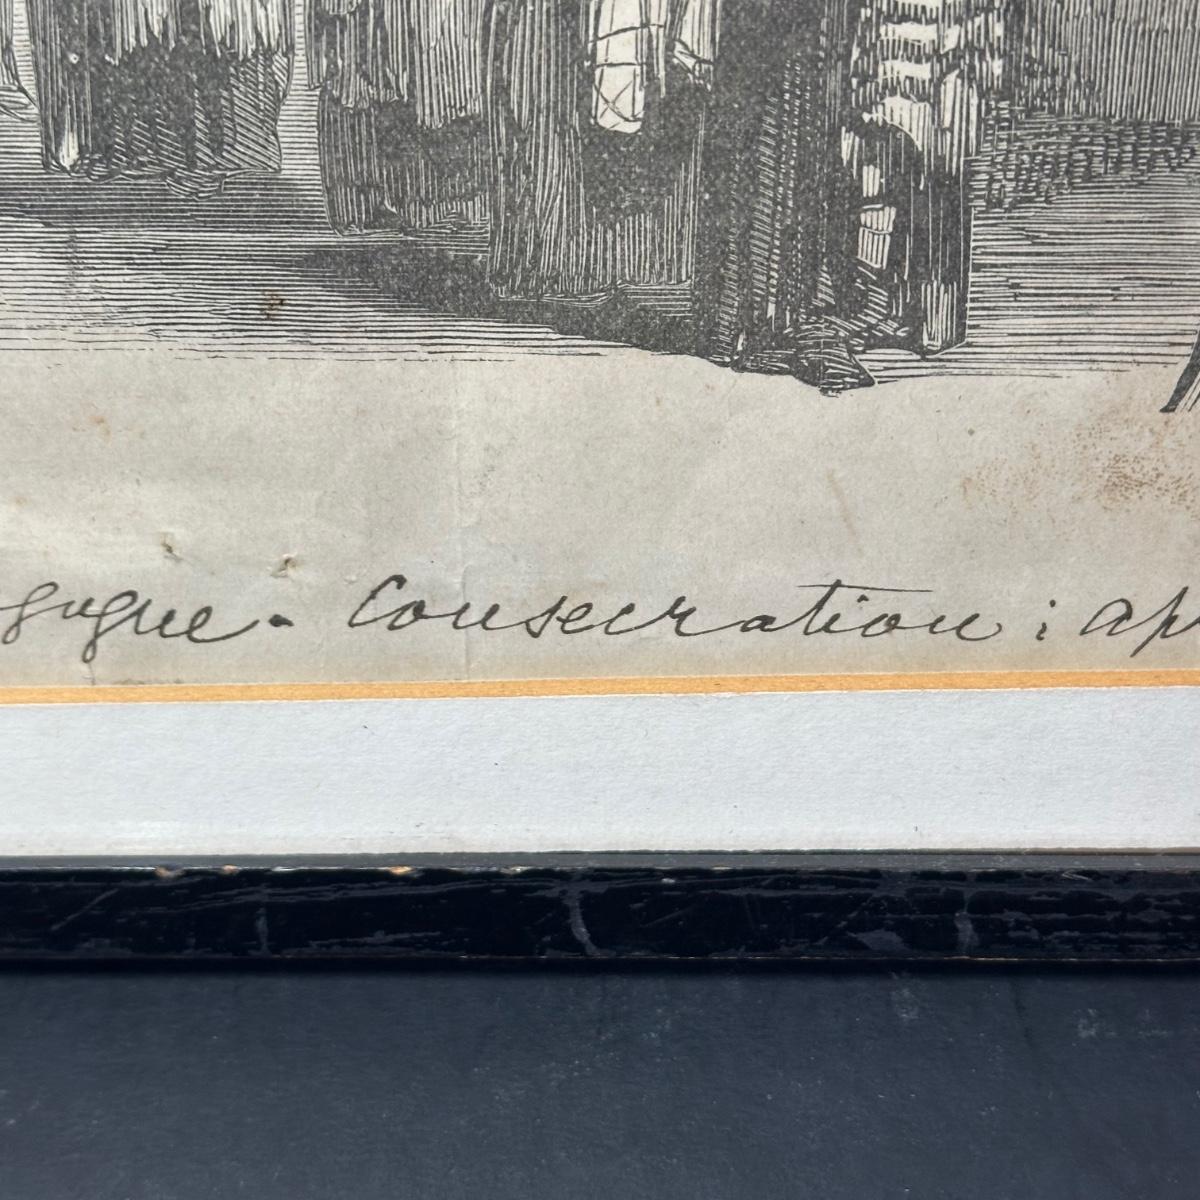 gogue. Consecration : Ap